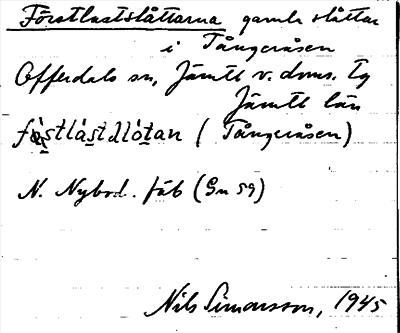 Förstlastslåttarna gamla slåttar
i Tångeråsen
Offerdals sn, Jämtl. v. doms. tg
Jämtl län
fò̱stlá̱stdló̱tan (Tångeråsen)
N. Nybod. fäb (Gn 59)
Nils Simonsson, 1945